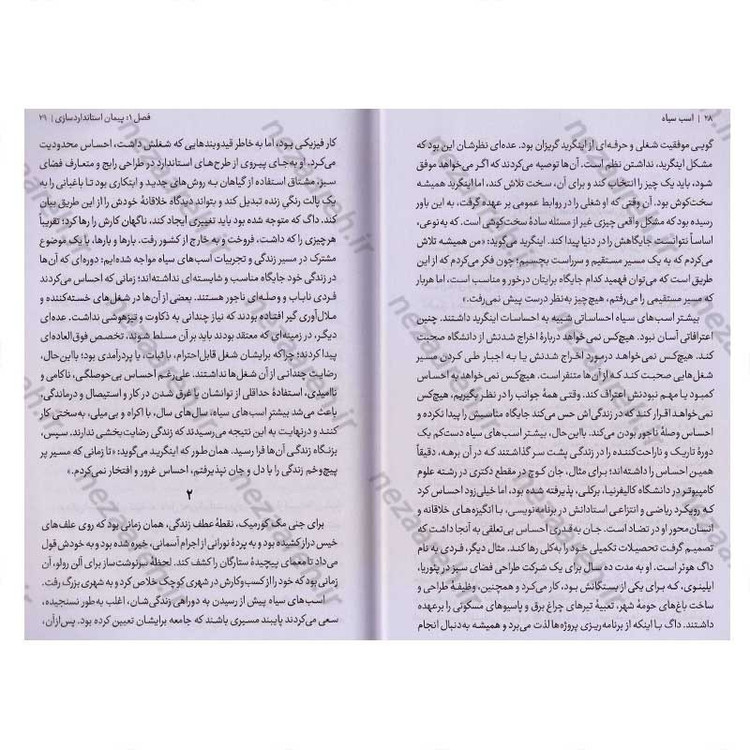 ۲۸ | اسب سیاه
گویی موفقیت شغلی و حرفه‌ای از اینگرید گریزان بود. عده‌ای نظرشان این بود که
مشکل اینگرید، نداشتن نظم است. آن‌ها توصیه می‌کردند که اگر می‌خواهد موفق
شود، باید یک چیز را انتخاب کند و برای آن، سخت تلاش کند، اما اینگرید همیشه
سخت‌کوش بود. آن وقتی که او شغلی را در روابط عمومی بر عهده گرفت، به این باور
رسیده بود که مشکل واقعی چیزی غیر از مسئله سادهٔ سخت‌کوشی است، که به‌نوعی،
اساساً نتوانست جایگاهش را در دنیا پیدا کند. اینگرید می‌گوید: «من همیشه تلاش
می‌کردم که به یک مسیر مستقیم و سرراست بچسبم؛ چون فکر می‌کردم که از این
طریق است که می‌توان فهمید کدام جایگاه برایتان درخور و مناسب است، اما هربار
که مسیر مستقیمی را می‌رفتم، هیچ‌چیز به‌نظر درست پیش نمی‌رفت.»
بیشتر اسب‌های سیاه احساساتی شبیه به احساسات اینگرید داشتند. چنین
اعترافاتی آسان نبود. هیچ‌کس نمی‌خواهد دربارهٔ اخراج شدنش از دانشگاه صحبت
کند. هیچ‌کس نمی‌خواهد درمورد اخراج شدنش یا به اجبار طی کردن مسیر
شغل‌هایی صحبت کند که از آن‌ها متنفر است. هیچ‌کس نمی‌خواهد به احساس
کمبود یا مهم نبودنش اعتراف کند. وقتی همهٔ جوانب را در نظر بگیریم، هیچ‌کس
نمی‌خواهد اقرار کند که در زندگی‌اش حس می‌کند جایگاه مناسبش را پیدا نکرده و
احساس وصلهٔ ناجور بودن می‌کند. بااین‌حال، بیشتر اسب‌های سیاه دست‌کم یک
دورهٔ تاریک و ناراحت‌کننده را در زندگی پشت سر گذاشتند که در آن برهه، دقیقاً
همین احساس را داشته‌اند؛ برای مثال، جان کوچ در مقطع دکتری در رشته علوم
کامپیوتر در دانشگاه کالیفرنیا، برکلی، پذیرفته شده بود، اما خیلی زود احساس کرد
که رویکرد ریاضی و انتزاعی استادانش در برنامه‌نویسی، با انگیزه‌های خلاقانه و
انسان محور او در تضاد است. جان به‌قدری احساس بی‌تعلقی به آنجا داشت که
تصمیم گرفت تحصیلات تکمیلی خود را به‌کلی رها کند. مثال دیگر، فردی به نام
داگ هوئر است. او به مدت ده سال برای یک شرکت طراحی فضای سبز در پئوریا،
ایلینوی، که برای یکی از بستگانش بود، کار می‌کرد و همچنین، وظیفهٔ طراحی و
ساخت باغ‌های حومهٔ شهر، تعبیهٔ تیرهای چراغ برق و پاسیوهای مسکونی را برعهده
داشتند. داگ با اینکه از برنامه‌ریزی پروژه‌ها لذت می‌برد و همیشه به‌دنبال انجام
فصل ۱: پیمان استانداردسازی | ۲۹
کار فیزیکی بود، اما به خاطر قیدوبندهایی که شغلش داشت، احساس محدودیت
می‌کرد. او به‌جای پیروی از طرح‌های استاندارد در طراحی رایج و متعارف فضای
سبز، مشتاق استفاده از گیاهان به روش‌های جدید و ابتکاری بود تا باغبانی را به
یک پالت رنگی زنده تبدیل کند و بتواند دیدگاه خلاقانهٔ خودش را از این طریق بیان
کند. داگ که متوجه شده بود باید تغییری ایجاد کند، ناگهان کارش را رها کرد؛ تقریباً
هرچیزی را که داشت، فروخت و به خارج از کشور رفت. بارها و بارها، با یک موضوع
مشترک در مسیر زندگی و تجربیات اسب‌های سیاه مواجه شده‌ایم؛ دوره‌ای که آن‌ها
در زندگی خود جایگاه مناسب و شایسته‌ای نداشته‌اند؛ زمانی که احساس می‌کردند
فردی نایاب و وصله‌ای ناجور هستند. بعضی از آن‌ها در شغل‌های خسته‌کننده و
ملال‌آوری گیر افتاده بودند که نیاز چندانی به ذکاوت و تیزهوشی نداشت. عده‌ای
دیگر، در زمینه‌ای که معتقد بودند باید بر آن مسلط شوند، تخصص فوق‌العاده‌ای
پیدا کردند؛ چراکه برایشان شغل قابل‌احترام، با ثبات، یا پردرآمدی بود؛ بااین‌حال،
رضایت چندانی از آن شغل‌ها نداشتند. علی‌رغم احساس بی‌حوصلگی، ناکامی و
ناامیدی، استفادهٔ حداقلی از توانشان یا غرق شدن در کار و استیصال و درماندگی،
باعث می‌شد بیشتر اسب‌های سیاه، سال‌های سال، با اکراه و بی‌میلی، به‌سختی کار
کنند و درنهایت به این نتیجه می‌رسیدند که زندگی رضایت‌بخشی ندارند. سپس،
بزنگاه زندگی آن‌ها فرا رسید. همان‌طور که اینگرید می‌گوید: «تا زمانی که مسیر پر
پیچ‌وخم زندگی را با دل و جان نپذیرفتم، احساس غرور و افتخار نمی‌کردم.»
۲
برای جنی مک کورمیک، نقطهٔ عطف زندگی، همان زمانی بود که روی علف‌های
خیس دراز کشیده و به پردهٔ نورانی از اجرام آسمانی، خیره شده بود و به خودش قول
می‌داد تا معمای پیچیدهٔ ستارگان را کشف کند. لحظهٔ سرنوشت‌ساز برای آلن رولو، آن
زمانی بود که خود را از کسب‌وکارش در شهری کوچک خلاص کرد و به شهری بزرگ رفت.
اسب‌های سیاه پیش از رسیدن به دوراهی زندگی‌شان، اغلب به‌طور نسنجیده،
سعی می‌کردند پایبند مسیری باشند که جامعه برایشان تعیین کرده بود. پس‌ازآن،
nezaareh.ir